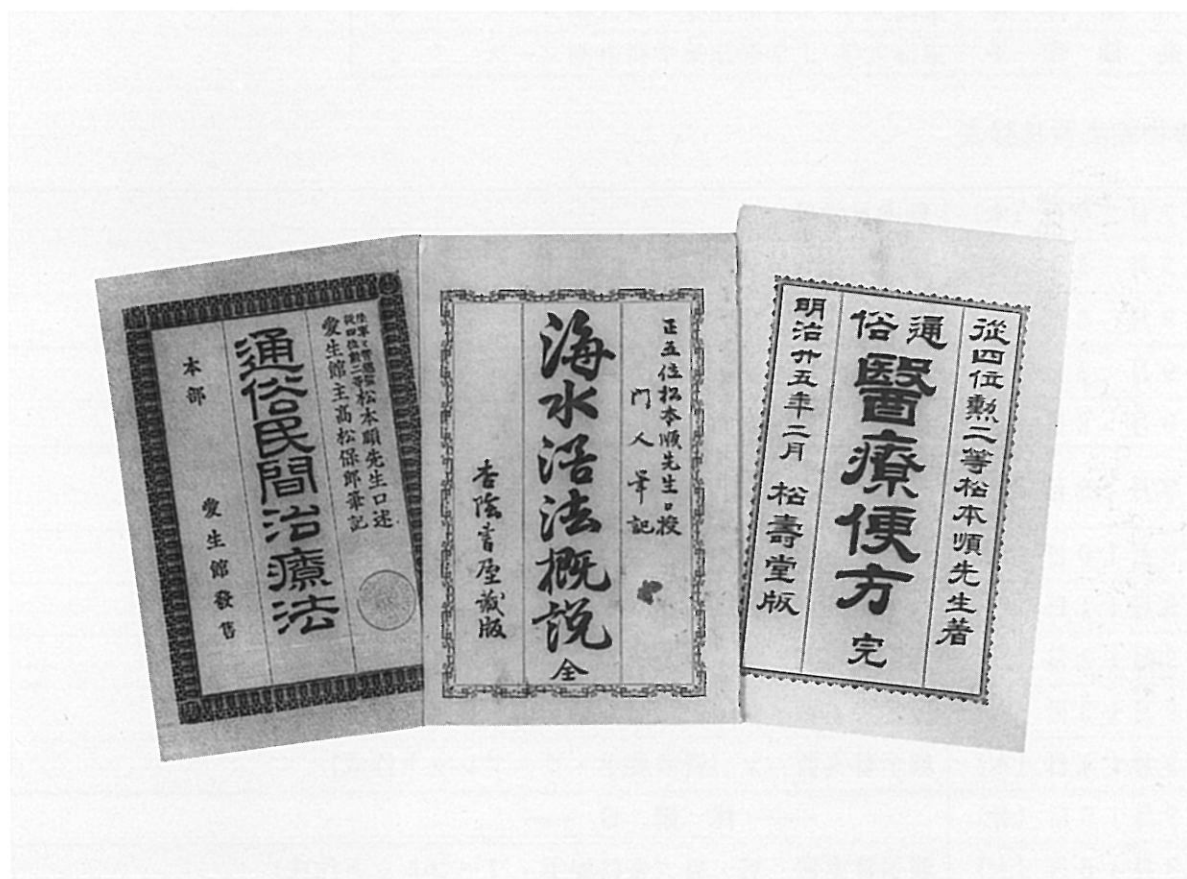 從四位勲二等松本順先生著
通俗
醫療便方 完
明治廾五年二月 松壽堂版
正五位松本順先生口授
門人筆記
海水浴法概説 全
香陰書屋蔵版
従四位勲二等松本順先生口述
愛生館主高松保郎筆記
通俗民間治療法
本部
愛生館發售